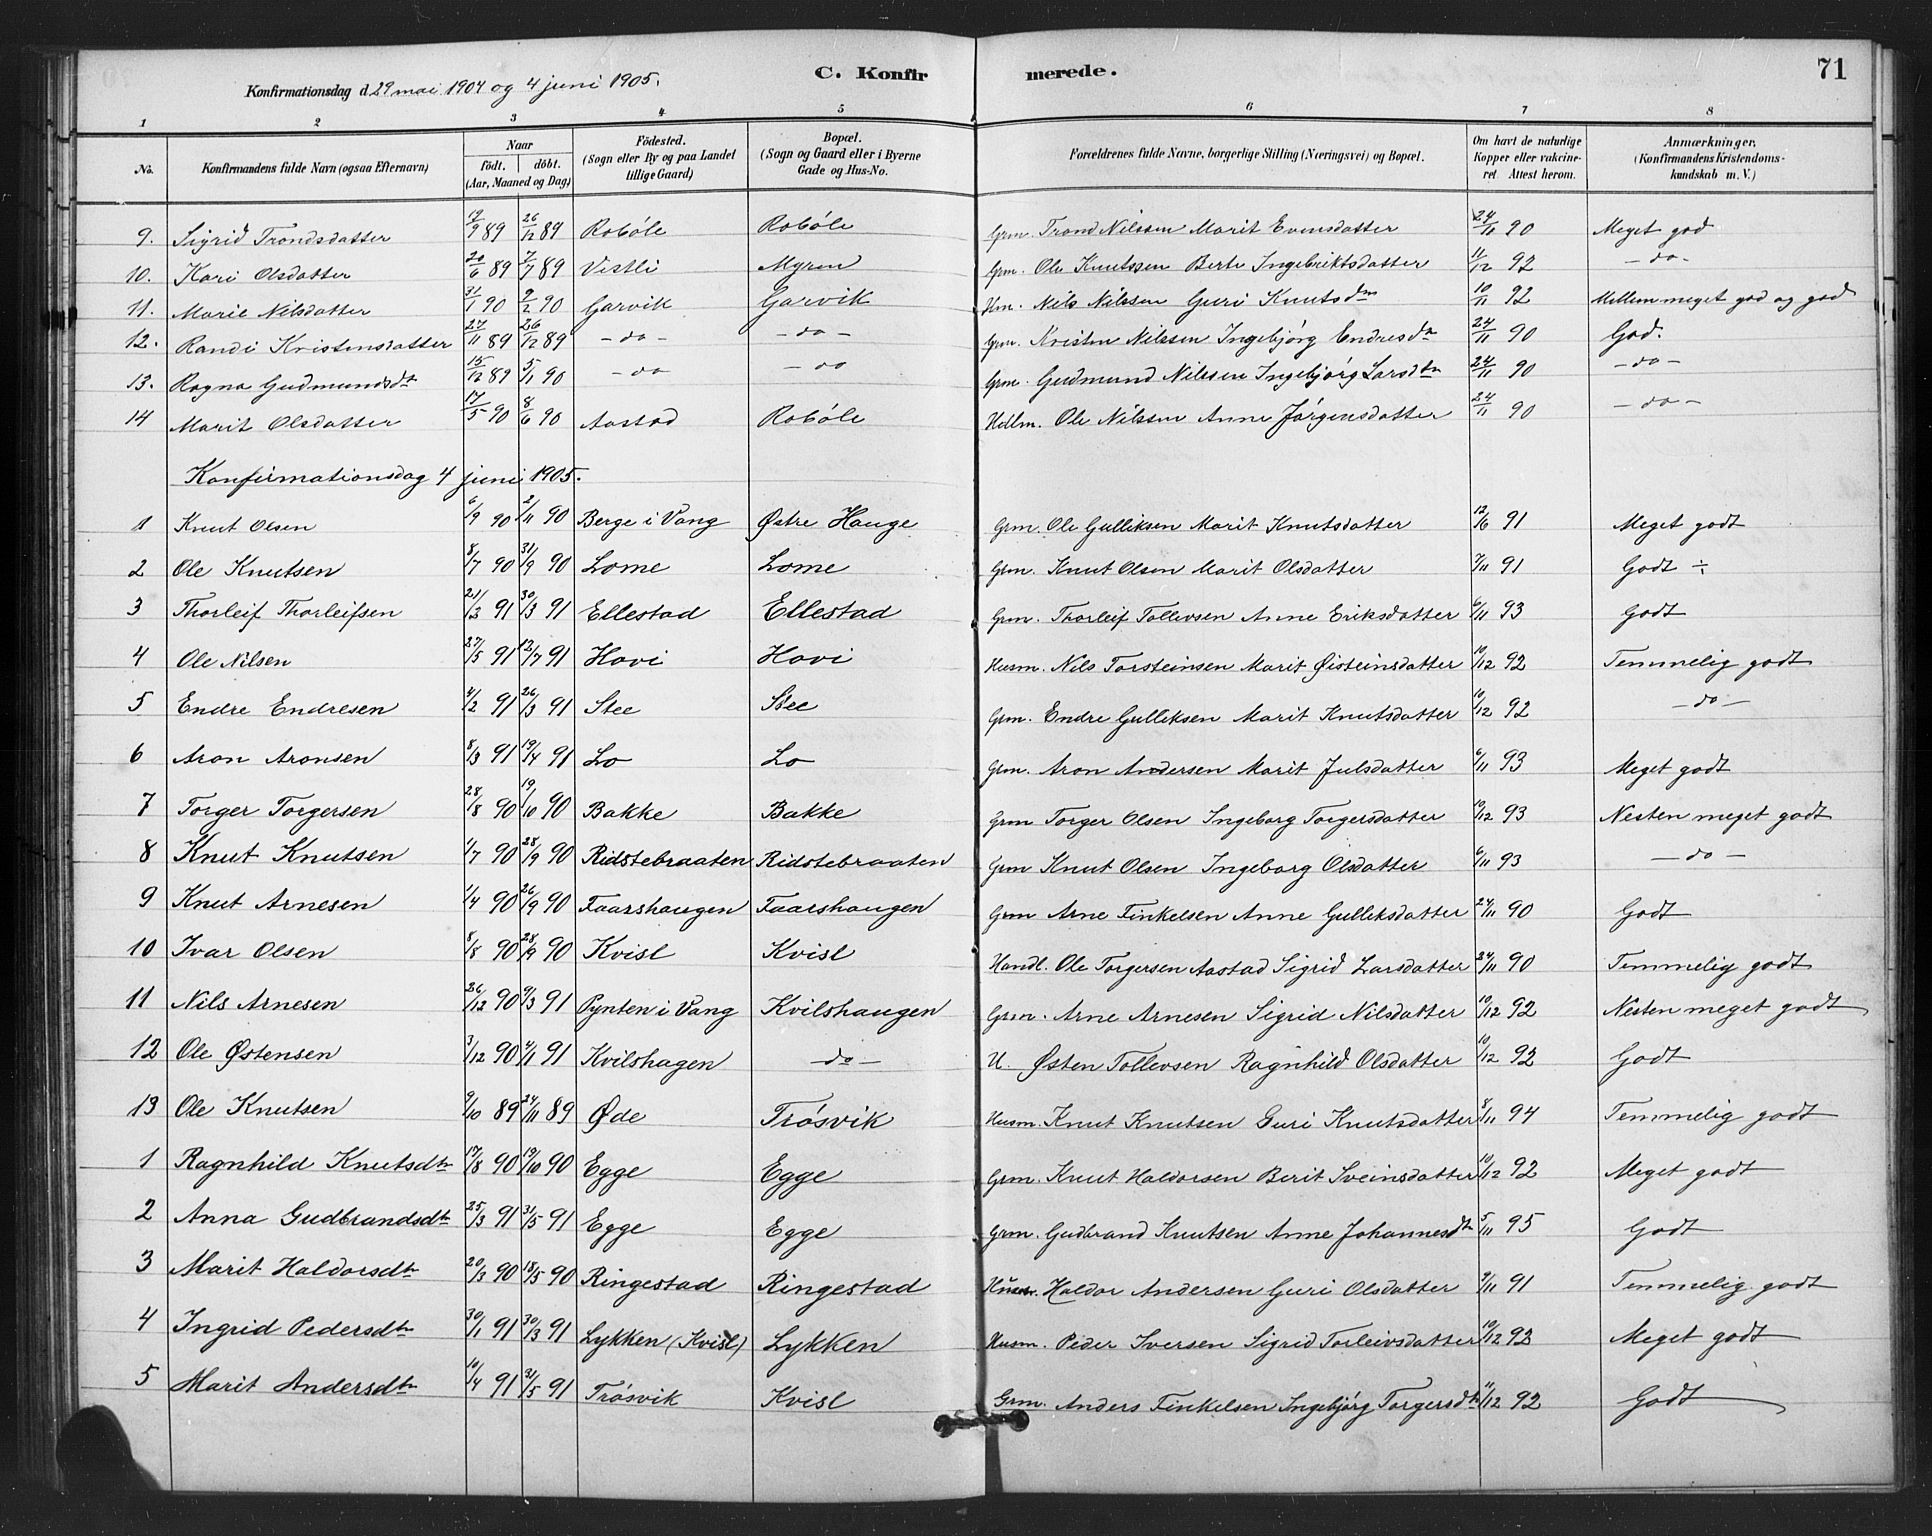 C. Konfirmerede. 71
Konfirmationsdag d. 29 mai 1904 og 4 juni 1905.
1 2 3 4 5 6 7 8
No. | Konfirmandens fulde Navn (ogsaa Efternavn) | Naar födt. | döbt. (Aar, Maaned og Dag) | Födested. (Sogn eller By og paa Landet tillige Gaard) | Bopæl. (Sogn og Gaard eller i Byerne Gade og Hus-No. | Forældrenes fulde Navne, borgerlige Stilling (Næringsvei) og Bopæl. | Om havt de naturlige Kopper eller vakcineret. Attest herom. | Anmærkninger. (Konfirmandens Kristendomskundskab m. V.)
9. Sigrid Trondsdatter | 17/9 89 | 26/12 89 | Robøle | Robøle | Grm. Trond Nilssen Marit Evensdatter | 24/11 90 | Meget god
10. Kari Olsdatter | 20/6 89 | 7/7 89 | Vestli | Myren | Grm. Ole Knutssen Berte Ingebriktsdatter | 11/12 92 | - do -
11. Marie Nilsdatter | 31/1 90 | 9/2 90 | Garvik | Garvik | Hm. Nils Nilssen Guri Knutsdtr | 10/11 92 | Mellem meget god og god
12. Randi Kristensdatter | 27/11 89 | 26/12 89 | - do - | - do - | Grm. Kristen Nilssen Ingebjørg Endresdtr | 24/11 90 | God.
13. Ragna Gudmundsdt | 15/12 89 | 5/11 90 | - do | - do | Grm. Gudmund Nilssen Ingebjørg Larsdtr | 24/11 90 | - do -
14 Marit Olsdatter | 17/5 90 | 8/6 90 | Aastad | Robøle | Ole Nilssen Anne Jørgensdatter | 24/11 90 | - do -
Konfirmationsdag 4 juni 1905.
1 Knut Olsen | 6/9 90 | 2/11 90 | Berge i Vang | Østre Hauge | Grm. Ole Gulliksen Marit Knutsdatter | 12/6 91 | Meget godt
2 Ole Knutsen | 8/7 90 | 31/9 90 | Lome | Lome | Grm. Knut Olsen Marit Olsdatter | 7/11 91 | Godt ÷
3 Thorleif Thorleifsen | 21/2 91 | 30/3 91 | Ellestad | Ellestad | Grm. Thorleif Tollevsen Anne Eriksdatter | 6/11 93 | Godt
4 Ole Nilsen | 27/5 91 | 12/7 91 | Hovi | Hovi | Husm. Nils Torsteinsen Marit Øisteinsdatter | 10/12 92 | Temmelig godt
5 Endre Endresen | 4/2 91 | 26/3 91 | Stee | Stee | Grm. Endre Gulliksen Marit Knutsdatter | 10/12 92 | - do -
6 Aron Aronsen | 8/3 91 | 19/4 91 | Lo | Lo | Grm. Aron Andersen Marit Julsdatter | 6/11 93 | Meget godt
7 Torger Torgersen | 28/8 90 | 19/10 90 | Bakke | Bakke | Grm Torger Olsen Ingeborg Torgersdatter | 10/12 93 | Nesten meget godt
8 Knut Knutsen | 1/7 90 | 28/9 90 | Ridstebraaten | Ridstebraaten | Grm Knut Olsen Ingeborg Olsdatter | 6/11 93 | - do -
9 Knut Arnesen | 1/4 90 | 26/9 90 | Faarshaugen | Faarshaugen | Grm Arne Finkelsen Anne Gulliksdatter | 24/11 90 | Godt
10 Ivar Olsen | 8/8 90 | 28/9 90 | Kvisl | Kvisl | Handl. Ole Torgersen Aastad Sigrid Larsdatter | 24/11 90 | Temmelig godt
11 Nils Arnesen | 26/12 90 | 9/3 91 | Pynten i Vang | Kvilshaugen | Grm. Arne Arnesen Sigrid Nilsdatter | 10/12 92 | Nesten meget godt
12 Ole Østensen | 3/12 90 | 4/1 91 | Kvilshagen | - do - | U. Østen Tollevsen Ragnhild Olsdatter | 10/12 92 | Godt
13 Ole Knutsen | 9/10 89 | 24/11 89 | Øde | Trøsvik | Husm. Knut Knutsen Guri Knutsdatter | 8/11 94 | Temmelig godt
1 Ragnhild Knutsdtr | 17/8 90 | 19/10 90 | Egge | Egge | Grm. Knut Haldorsen Berit Sveinsdatter | 10/12 92 | Meget godt
2 Anna Gudbrandsdtr | 25/3 91 | 31/5 91 | Egge | Egge | Grm. Gudbrand Knutsen Anne Johannesdtr | 5/11 95 | Godt
3 Marit Haldorsdtr | 20/3 90 | 18/5 90 | Ringestad | Ringestad | Husm. Haldor Andersen Guri Olsdatter | 9/11 91 | Temmelig godt
4 Ingrid Pedersdtr | 30/1 91 | 30/3 91 | Lykken (Kvisl) | Lykken | Husm. Peder Iversen Sigrid Torleivsdatter | 10/12 92 | Meget godt
5 Marit Andersdtr | 10/4 91 | 31/5 91 | Trøsvik | Kvisl | Grm. Anders Finkelsen Ingebjørg Torgersdtr | 11/12 92 | Godt